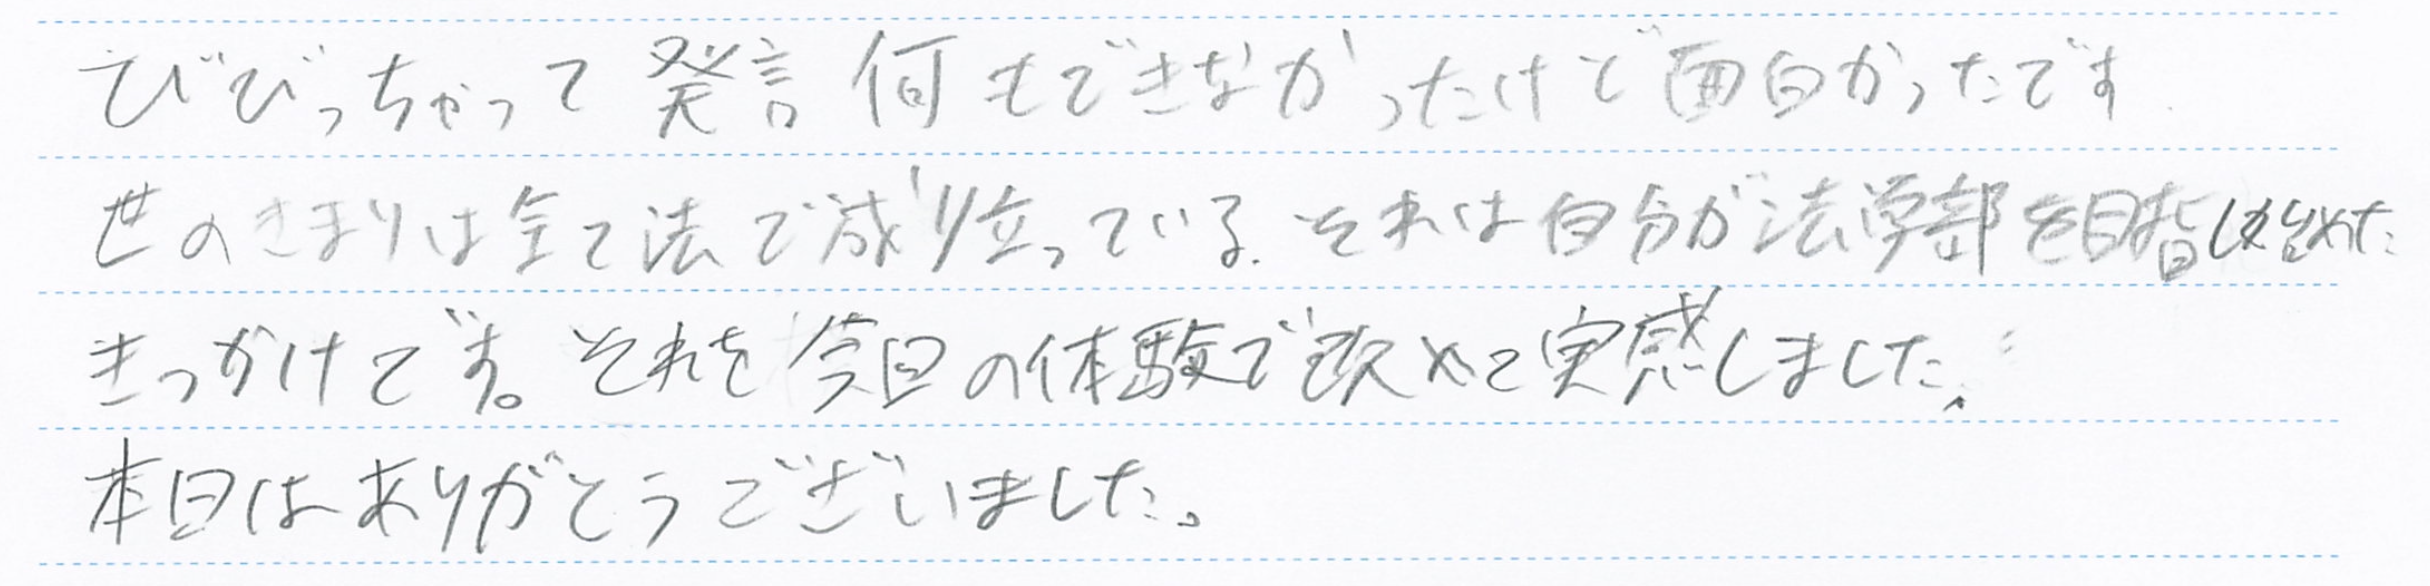 びびっちゃって発言何もできなかったけど面白かったです
世のきまりは全て法で成り立っている。それは自分が法学部を目指し始めた
きっかけです。それを今日の体験で改めて実感しました。
本日はありがとうございました。